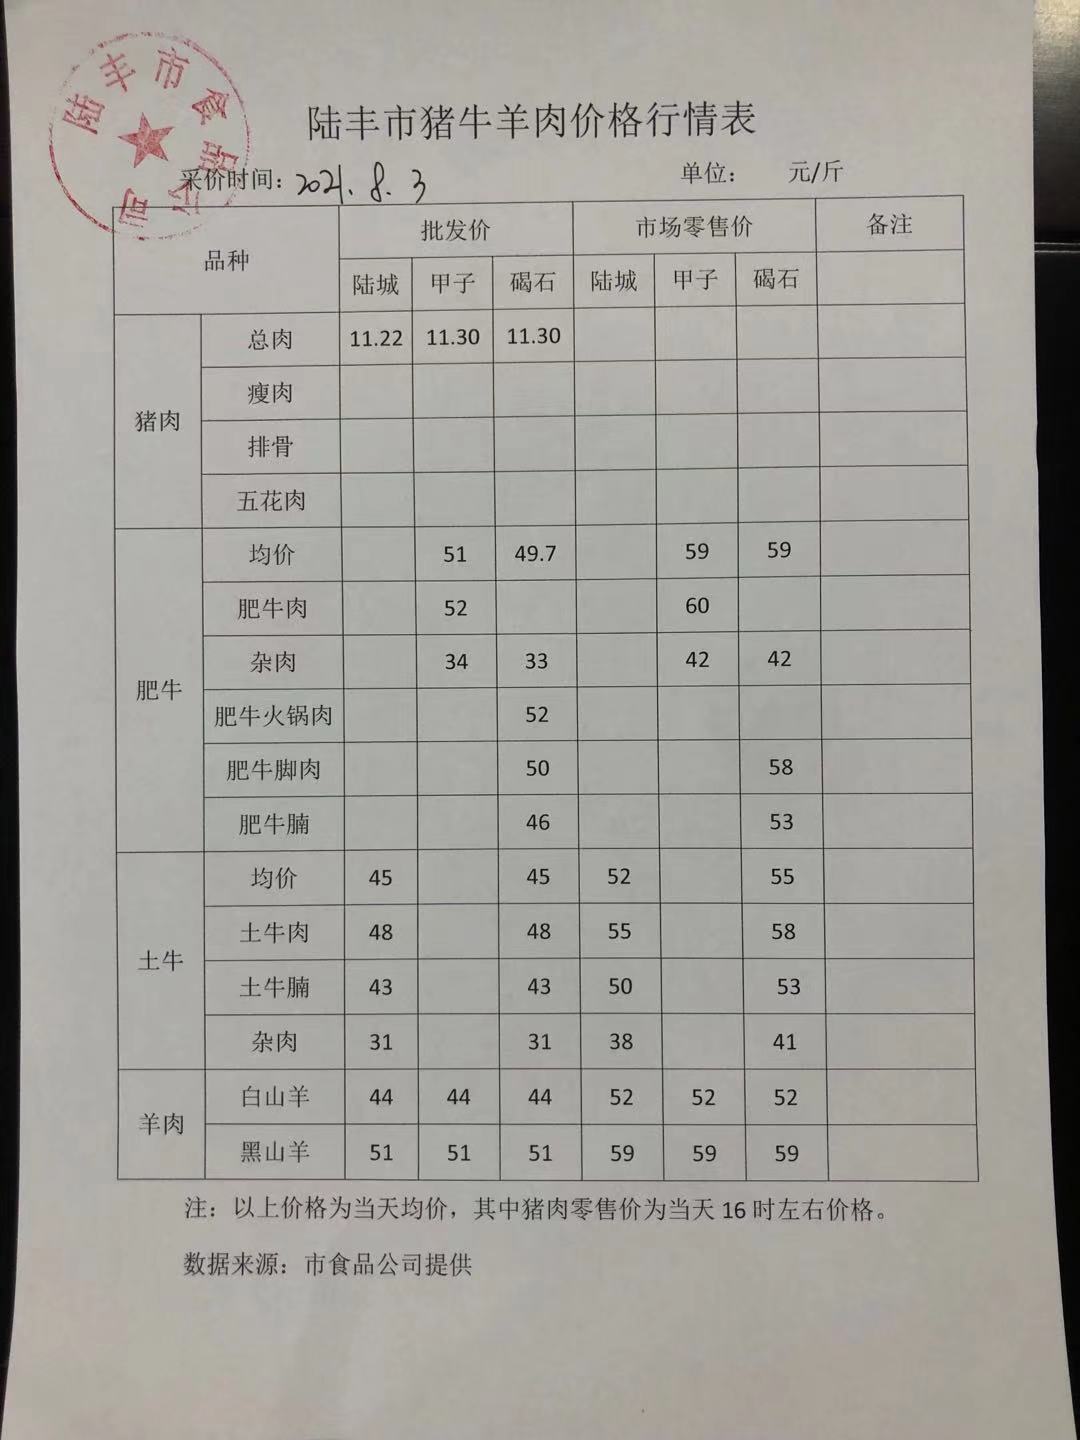 陆丰市食品公司
陆丰市猪牛羊肉价格行情表
采价时间：2021.8.3 单位： 元/斤
品种 批发价 市场零售价 备注
陆城 甲子 碣石 陆城 甲子 碣石
猪肉
总肉 11.22 11.30 11.30
瘦肉
排骨
五花肉
肥牛
均价 51 49.7 59 59
肥牛肉 52 60
杂肉 34 33 42 42
肥牛火锅肉 52
肥牛脚肉 50 58
肥牛腩 46 53
土牛
均价 45 45 52 55
土牛肉 48 48 55 58
土牛腩 43 43 50 53
杂肉 31 31 38 41
羊肉
白山羊 44 44 44 52 52 52
黑山羊 51 51 51 59 59 59
注：以上价格为当天均价，其中猪肉零售价为当天16时左右价格。
数据来源：市食品公司提供